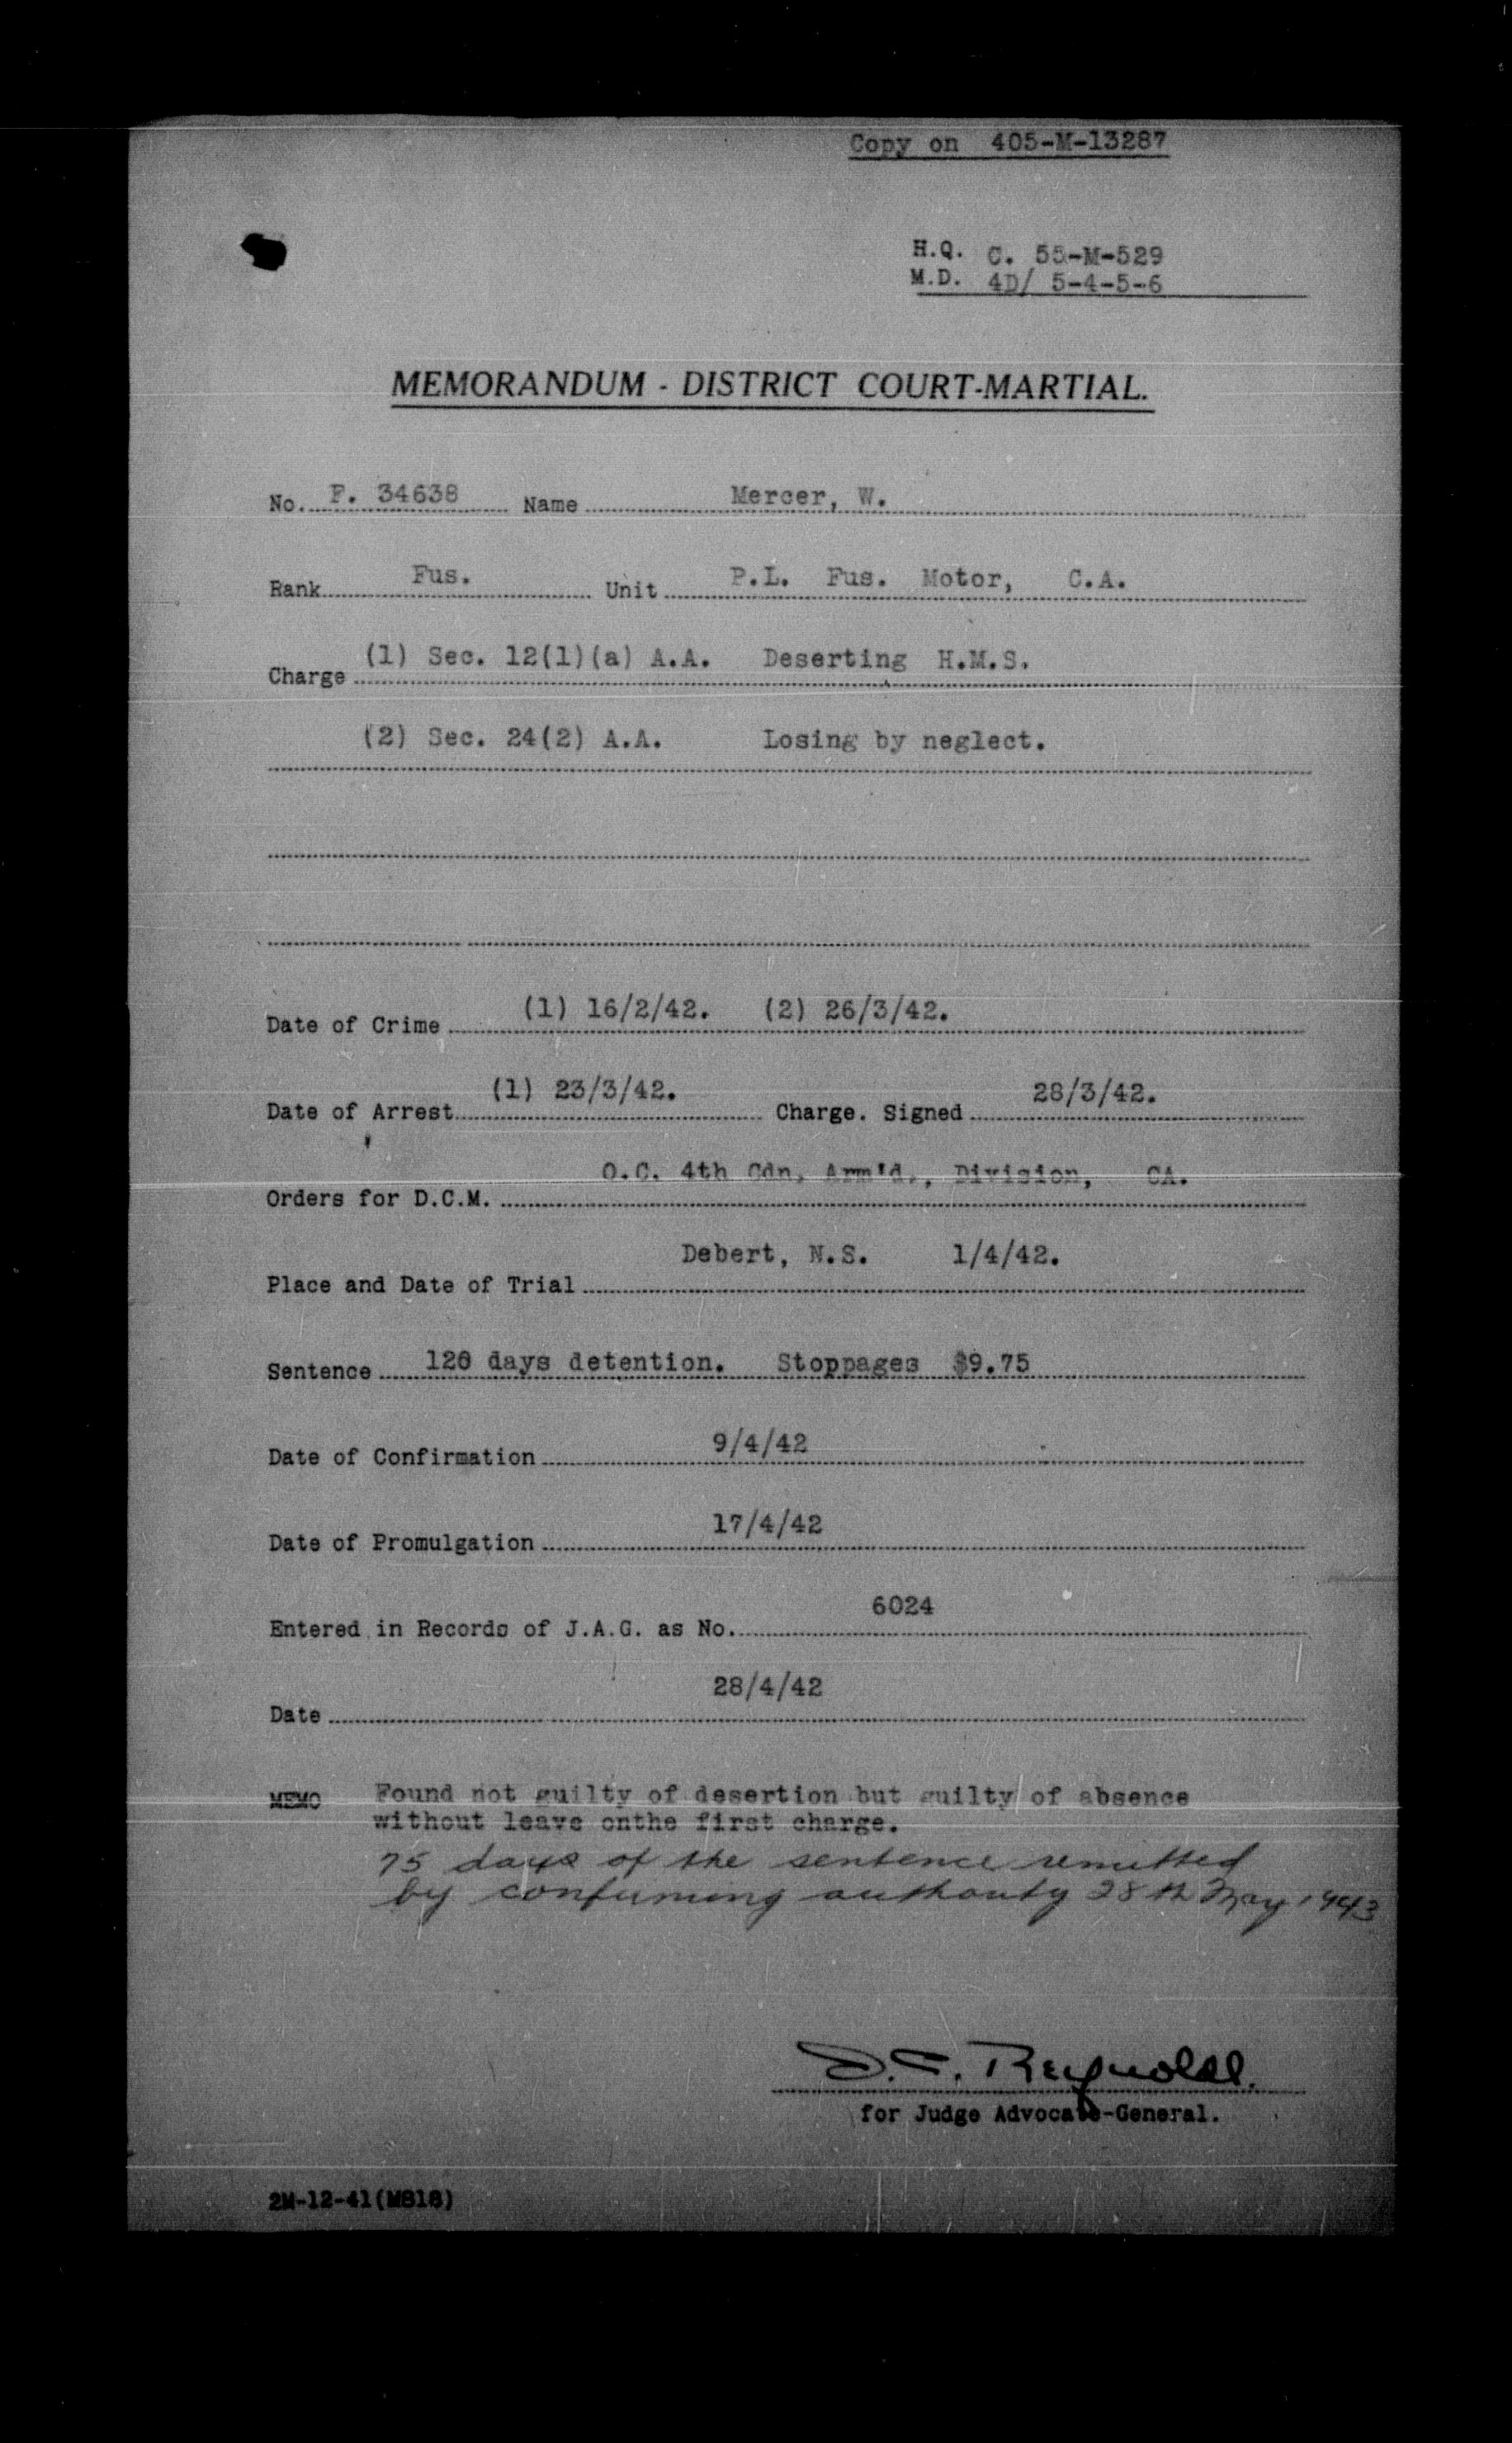 Copy on 405-M-13287
H.Q. C. 55-M-529
M.D. 4D/ 5-4-5-6
MEMORANDUM - DISTRICT COURT-MARTIAL.
No. F. 34638 Name Mercer, W.
Rank Fus. Unit P.L. Fus. Motor, C.A.
Charge (1) Sec. 12(1)(a) A.A. Deserting H.M.S.
(2) Sec. 24(2) A.A. Losing by neglect.
Date of Crime (1) 16/2/42. (2) 26/3/42.
Date of Arrest (1) 23/3/42. Charge. Signed 28/3/42.
Orders for D.C.M. O.C. 4th Cdn. Arm'd., Division, CA.
Place and Date of Trial Debert, N.S. 1/4/42.
Sentence days detention. Stoppages $9.75
Date of Confirmation 9/4/42
Date of Promulgation 17/4/42
Entered in Records of J.A.G. as No. 6024
Date 28/4/42
MEMO Found not guilty of desertion but guilty of absence
without leave onthe first charge.
75 days of the sentence remitted
by confirming authority 28th May 1943
Reynolds.
for Judge Advocate-General.
2M-12-41(M818)